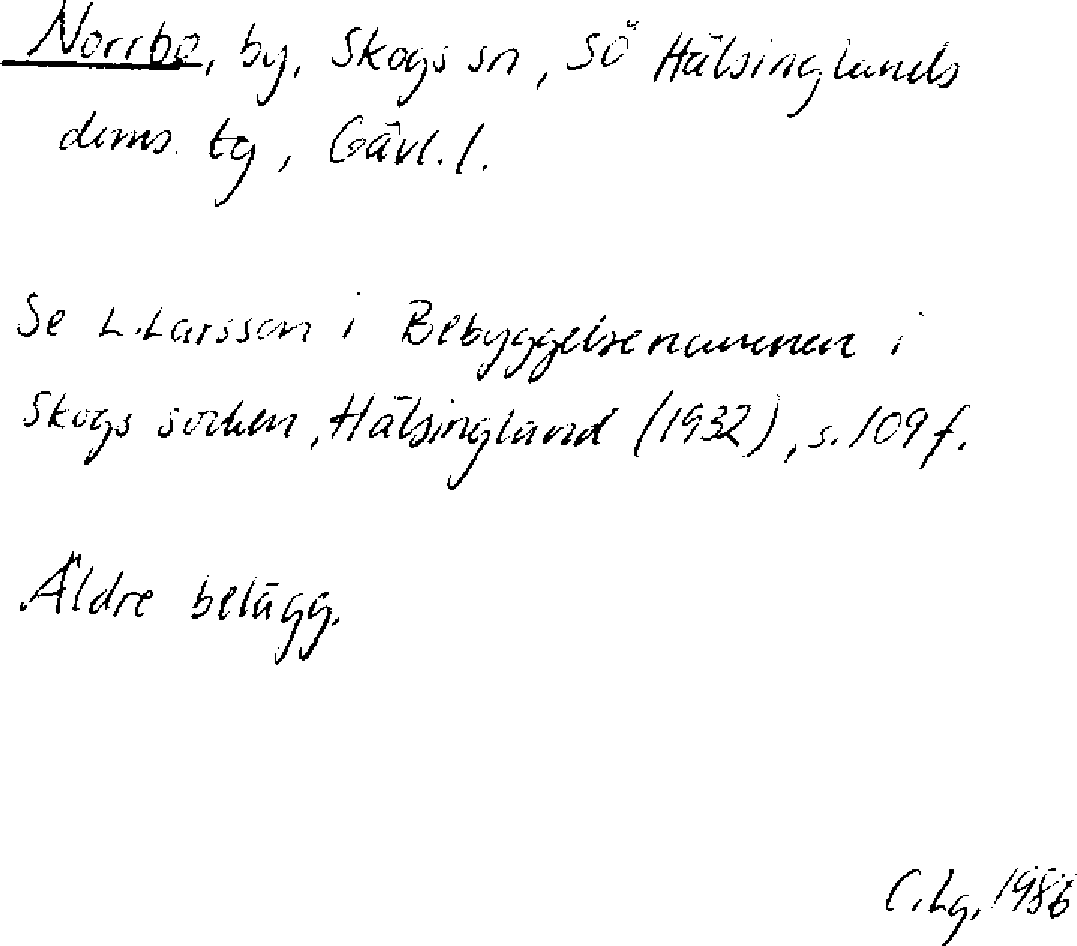 Norrbo, by, Skogs sn, SÖ Hälsinglands
doms. tg, Gävl. l.
Se L. Larsson i Bebyggelsenamnen i
Skogs socken, Hälsingland (1932), s. 109 f.
Äldre belägg.
C. Lg, 1986